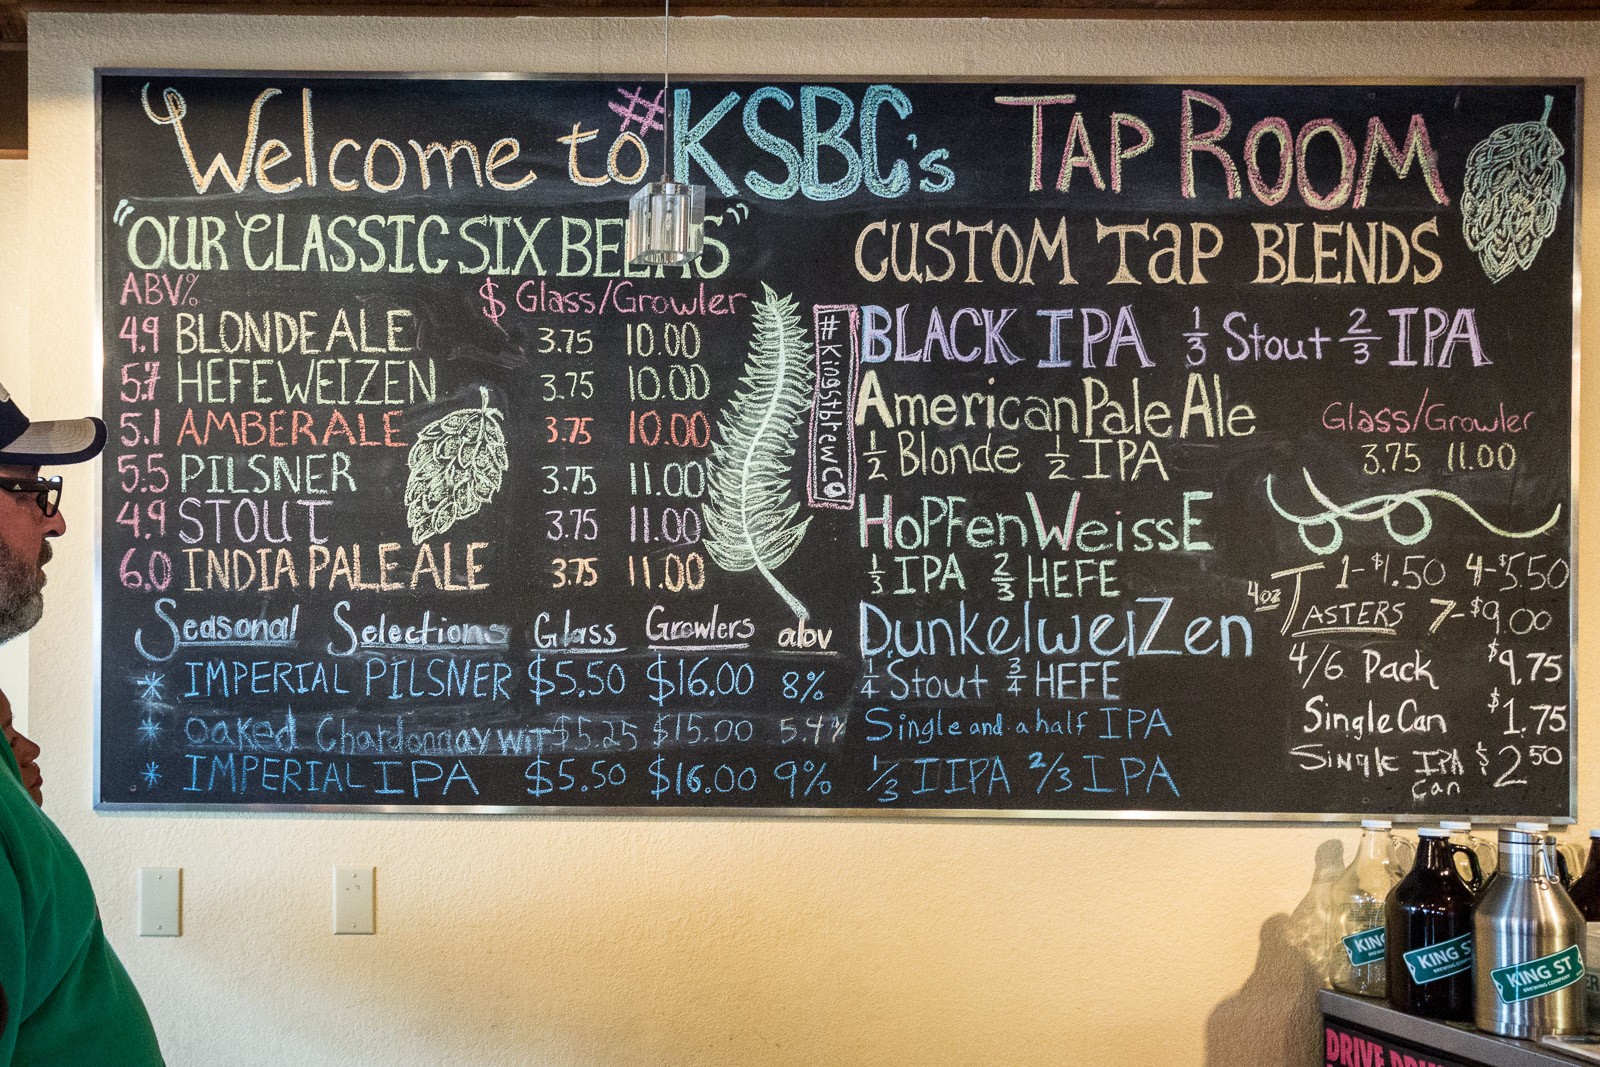 Welcome to #KSBC's TAP ROOM
"OUR CLASSIC SIX BEERS"
ABV% $ Glass/Growler
4.9 BLONDE ALE 3.75 10.00
5.7 HEFEWEIZEN 3.75 10.00
5.1 AMBER ALE 3.75 10.00
5.5 PILSNER 3.75 11.00
4.9 STOUT 3.75 11.00
6.0 INDIA PALE ALE 3.75 11.00
Seasonal Selections Glass Growlers abv
* IMPERIAL PILSNER $5.50 $16.00 8%
* oaked Chardonnay WIT $5.25 $15.00 5.4%
* IMPERIAL IPA $5.50 $16.00 9%
#Kingstbrewco
CUSTOM TaP BLENDS
BLACK IPA 1/3 Stout 2/3 IPA
American Pale Ale
1/2 Blonde 1/2 IPA
Glass/Growler
3.75 11.00
HoPFenWeissE
1/3 IPA 2/3 HEFE
DunkelweiZen
1/4 Stout 3/4 HEFE
Single and a half IPA
1/3 IIPA 2/3 IPA
4oz TASTERS 1-$1.50 4-$5.50
7-$9.00
4/6 Pack $9.75
Single Can $1.75
Single IPA can $2.50
KING
KING ST
BREWING COMPANY
KING ST
BREWING COMPANY
DRIVE